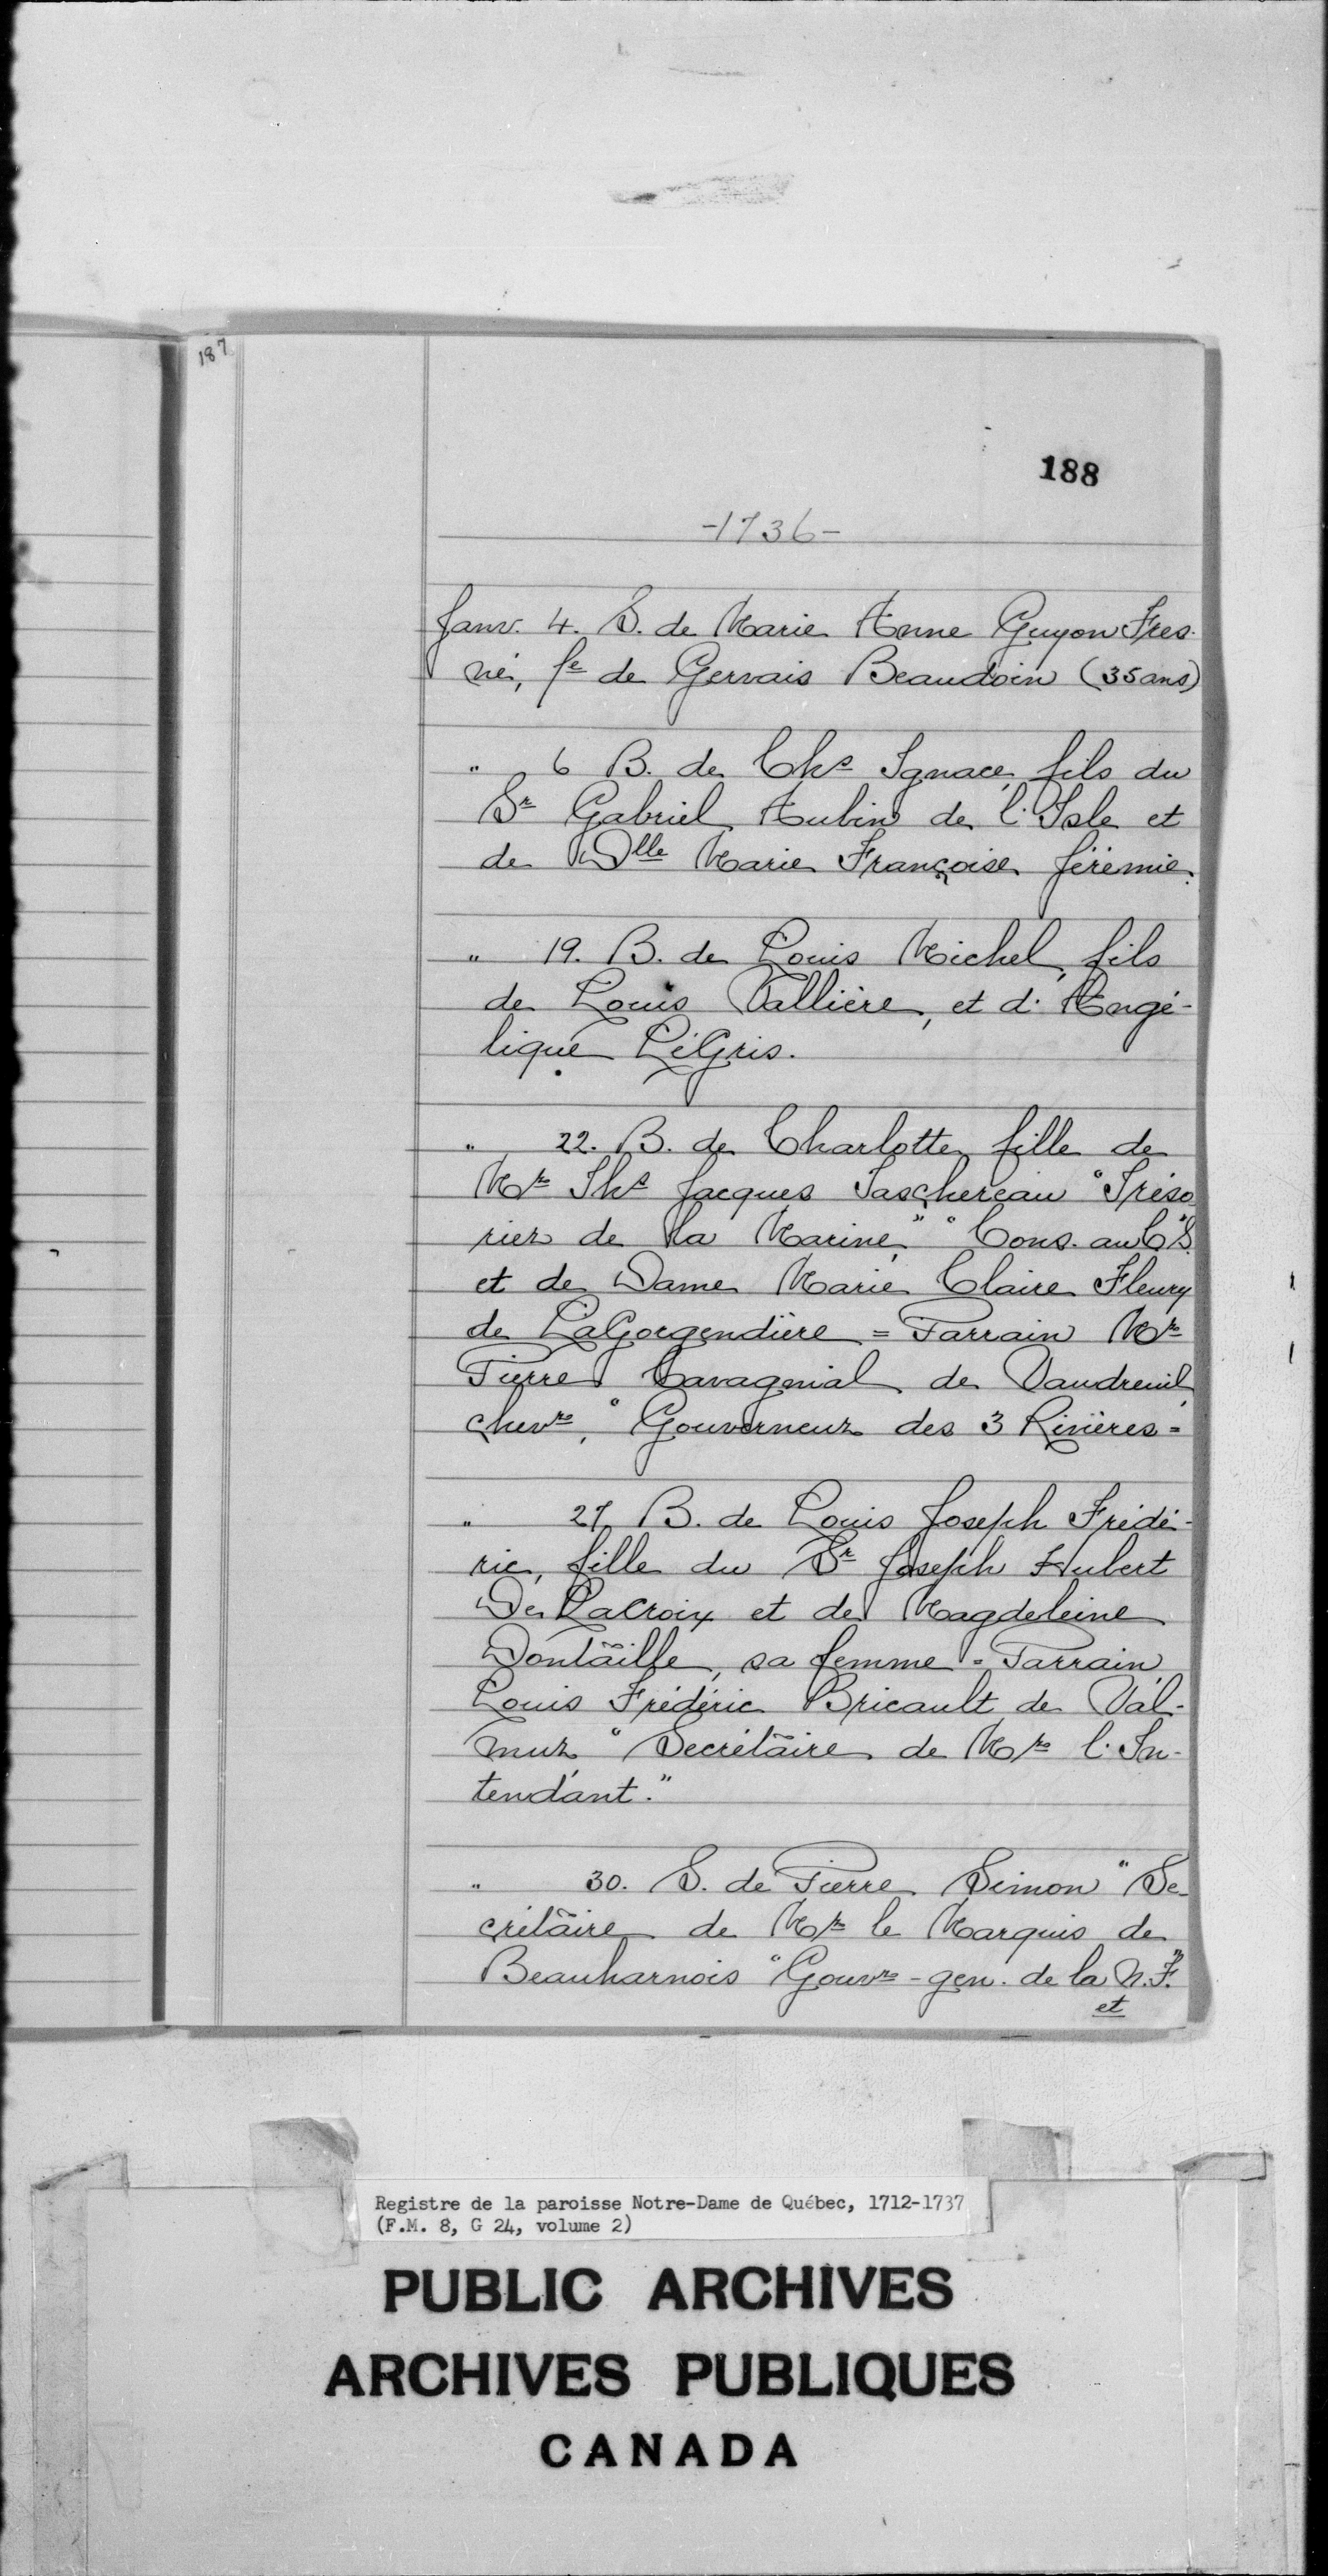 187
188
-1736-
Janv. 4. S. de Marie Anne Guyon Fres-
né, fe de Gervais Beaudoin (35 ans)
" 6 B. de Chs Ignace, fils du
Sr Gabriel Aubin de l'Isle et
de Dlle Marie Françoise Jérémie.
" 19. B. de Louis Michel, fils
de Louis Vallière, et d'Angé-
lique LéGris.
" 22. B. de Charlotte, fille de
Mr Ths Jacques Taschereau "Tréso
rier de la Marine," "Cons. au C.S."
et de Dame Marie Claire Fleury
de LaGorgendière = Parrain Mr
Pierre Cavagnial de Vaudreuil,
chevr, "Gouverneur des 3 Rivières=
" 27 B. de Louis Joseph Frédé-
ric, fille du Sr Joseph Hubert
De LaCroix et de Magdeleine
Dontaille, sa femme = Parrain,
Louis Frédéric Bricault de Val-
mur "Secrétaire de Mr l'In-
tendant."
" 30. S. de Pierre Simon "Se-
crétaire de Mr le Marquis de
Beauharnois "Gouvr-gen. de la N.F."
et
Registre de la paroisse Notre-Dame de Québec, 1712-1737
(F.M. 8, G 24, volume 2)
PUBLIC ARCHIVES
ARCHIVES PUBLIQUES
CANADA